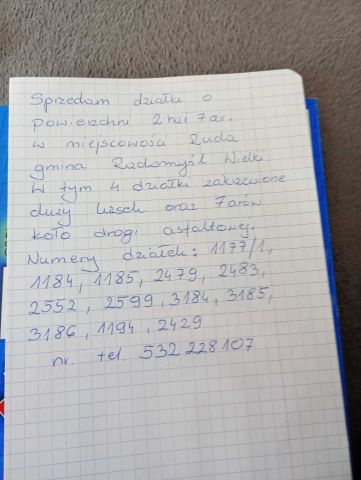 Sprzedam działki o
powierzchni 2 ha i 7 ar.
w miejscowości Ruda
gmina Radomyśl Wielki.
W tym 4 działki zakrzewione
duży lasek oraz 7 arów
koło drogi asfaltowej.
Numery działek: 1177/1,
1184, 1185, 2479, 2483,
2552, 2599, 3184, 3185,
3186, 1194, 2429
nr. tel. 532 228 107